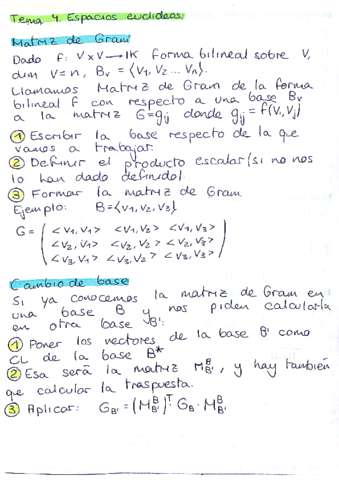 Tema 4. Espacios euclídeos.
Matriz de Gram
Dado f: V x V → IK forma bilineal sobre V,
dim V = n, Bv = {V1, V2 ... Vn}.
Llamamos Matriz de Gram de la forma
bilineal f con respecto a una base Bv
a la matriz G=gij donde gij = f(Vi, Vj)
1 Escribir la base respecto de la que
vamos a trabajar.
2 Definir el producto escalar (si no nos
lo han dado definido).
3 Formar la matriz de Gram.
Ejemplo: B={V1, V2, V3}
<V1, V1> <V1, V2> <V1, V3>
G = <V2, V1> <V2, V2> <V2, V3>
<V3, V1> <V3, V2> <V3, V3>
Cambio de base
Si ya conocemos la matriz de Gram en
una base B y nos piden calcularla
en otra base B':
1 Poner los vectores de la base B' como
CL de la base B*
2 Esa será la matriz M_B'^B, y hay también
que calcular la traspuesta.
3 Aplicar: G_B' = (M_B'^B)^T · G_B · M_B'^B